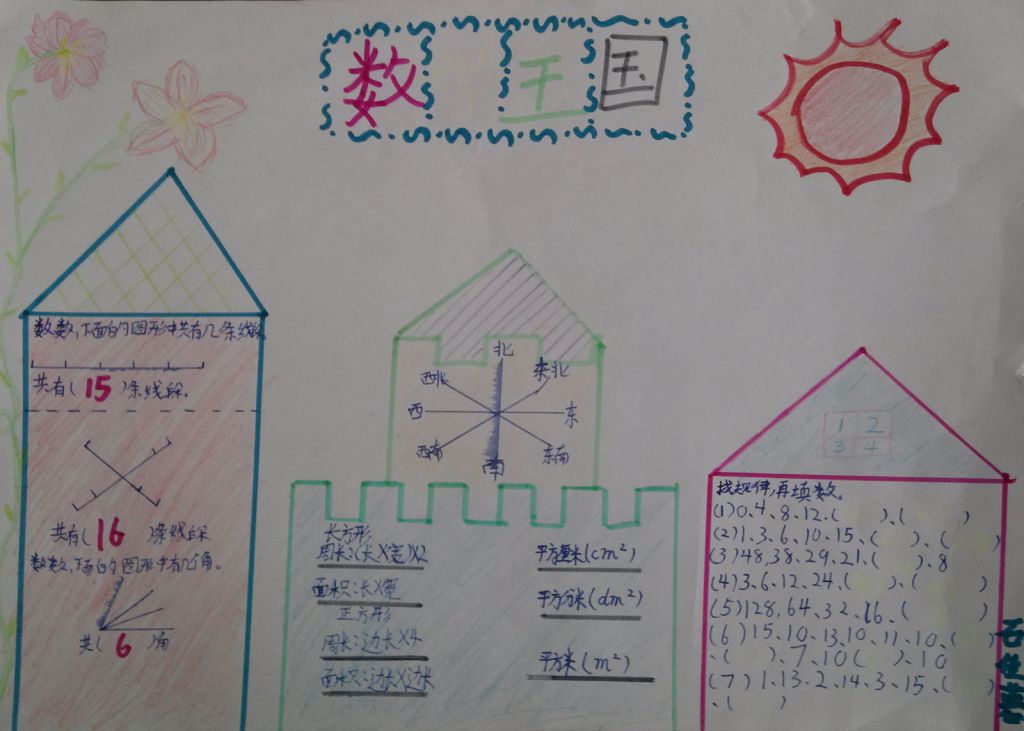 数 王国
数数,下面的图形中共有几条线段
共有(15)条线段。
共有(16)条线段
数数,下面的图形中有几个角。
共(6)角
北
西北 东北
西 东
西南 东南
南
长方形
周长:(长X宽)X2
面积:长X宽
正方形
周长:边长X4
面积:边长X边长
平方厘米(cm²)
平方分米(dm²)
平方米(m²)
1 2
3 4
找规律,再填数。
(1)0、4、8、12、( )、( )
(2)1、3、6、10、15、( )、( )
(3)48,38、29、21、( )、8
(4)3、6、12、24、( )、( )
(5)128,64、32、16、( )
(6)15、10、13、10、11、10、( )
、( )、7、10( )、10
(7)1、13、2、14、3、15、( )
、( )